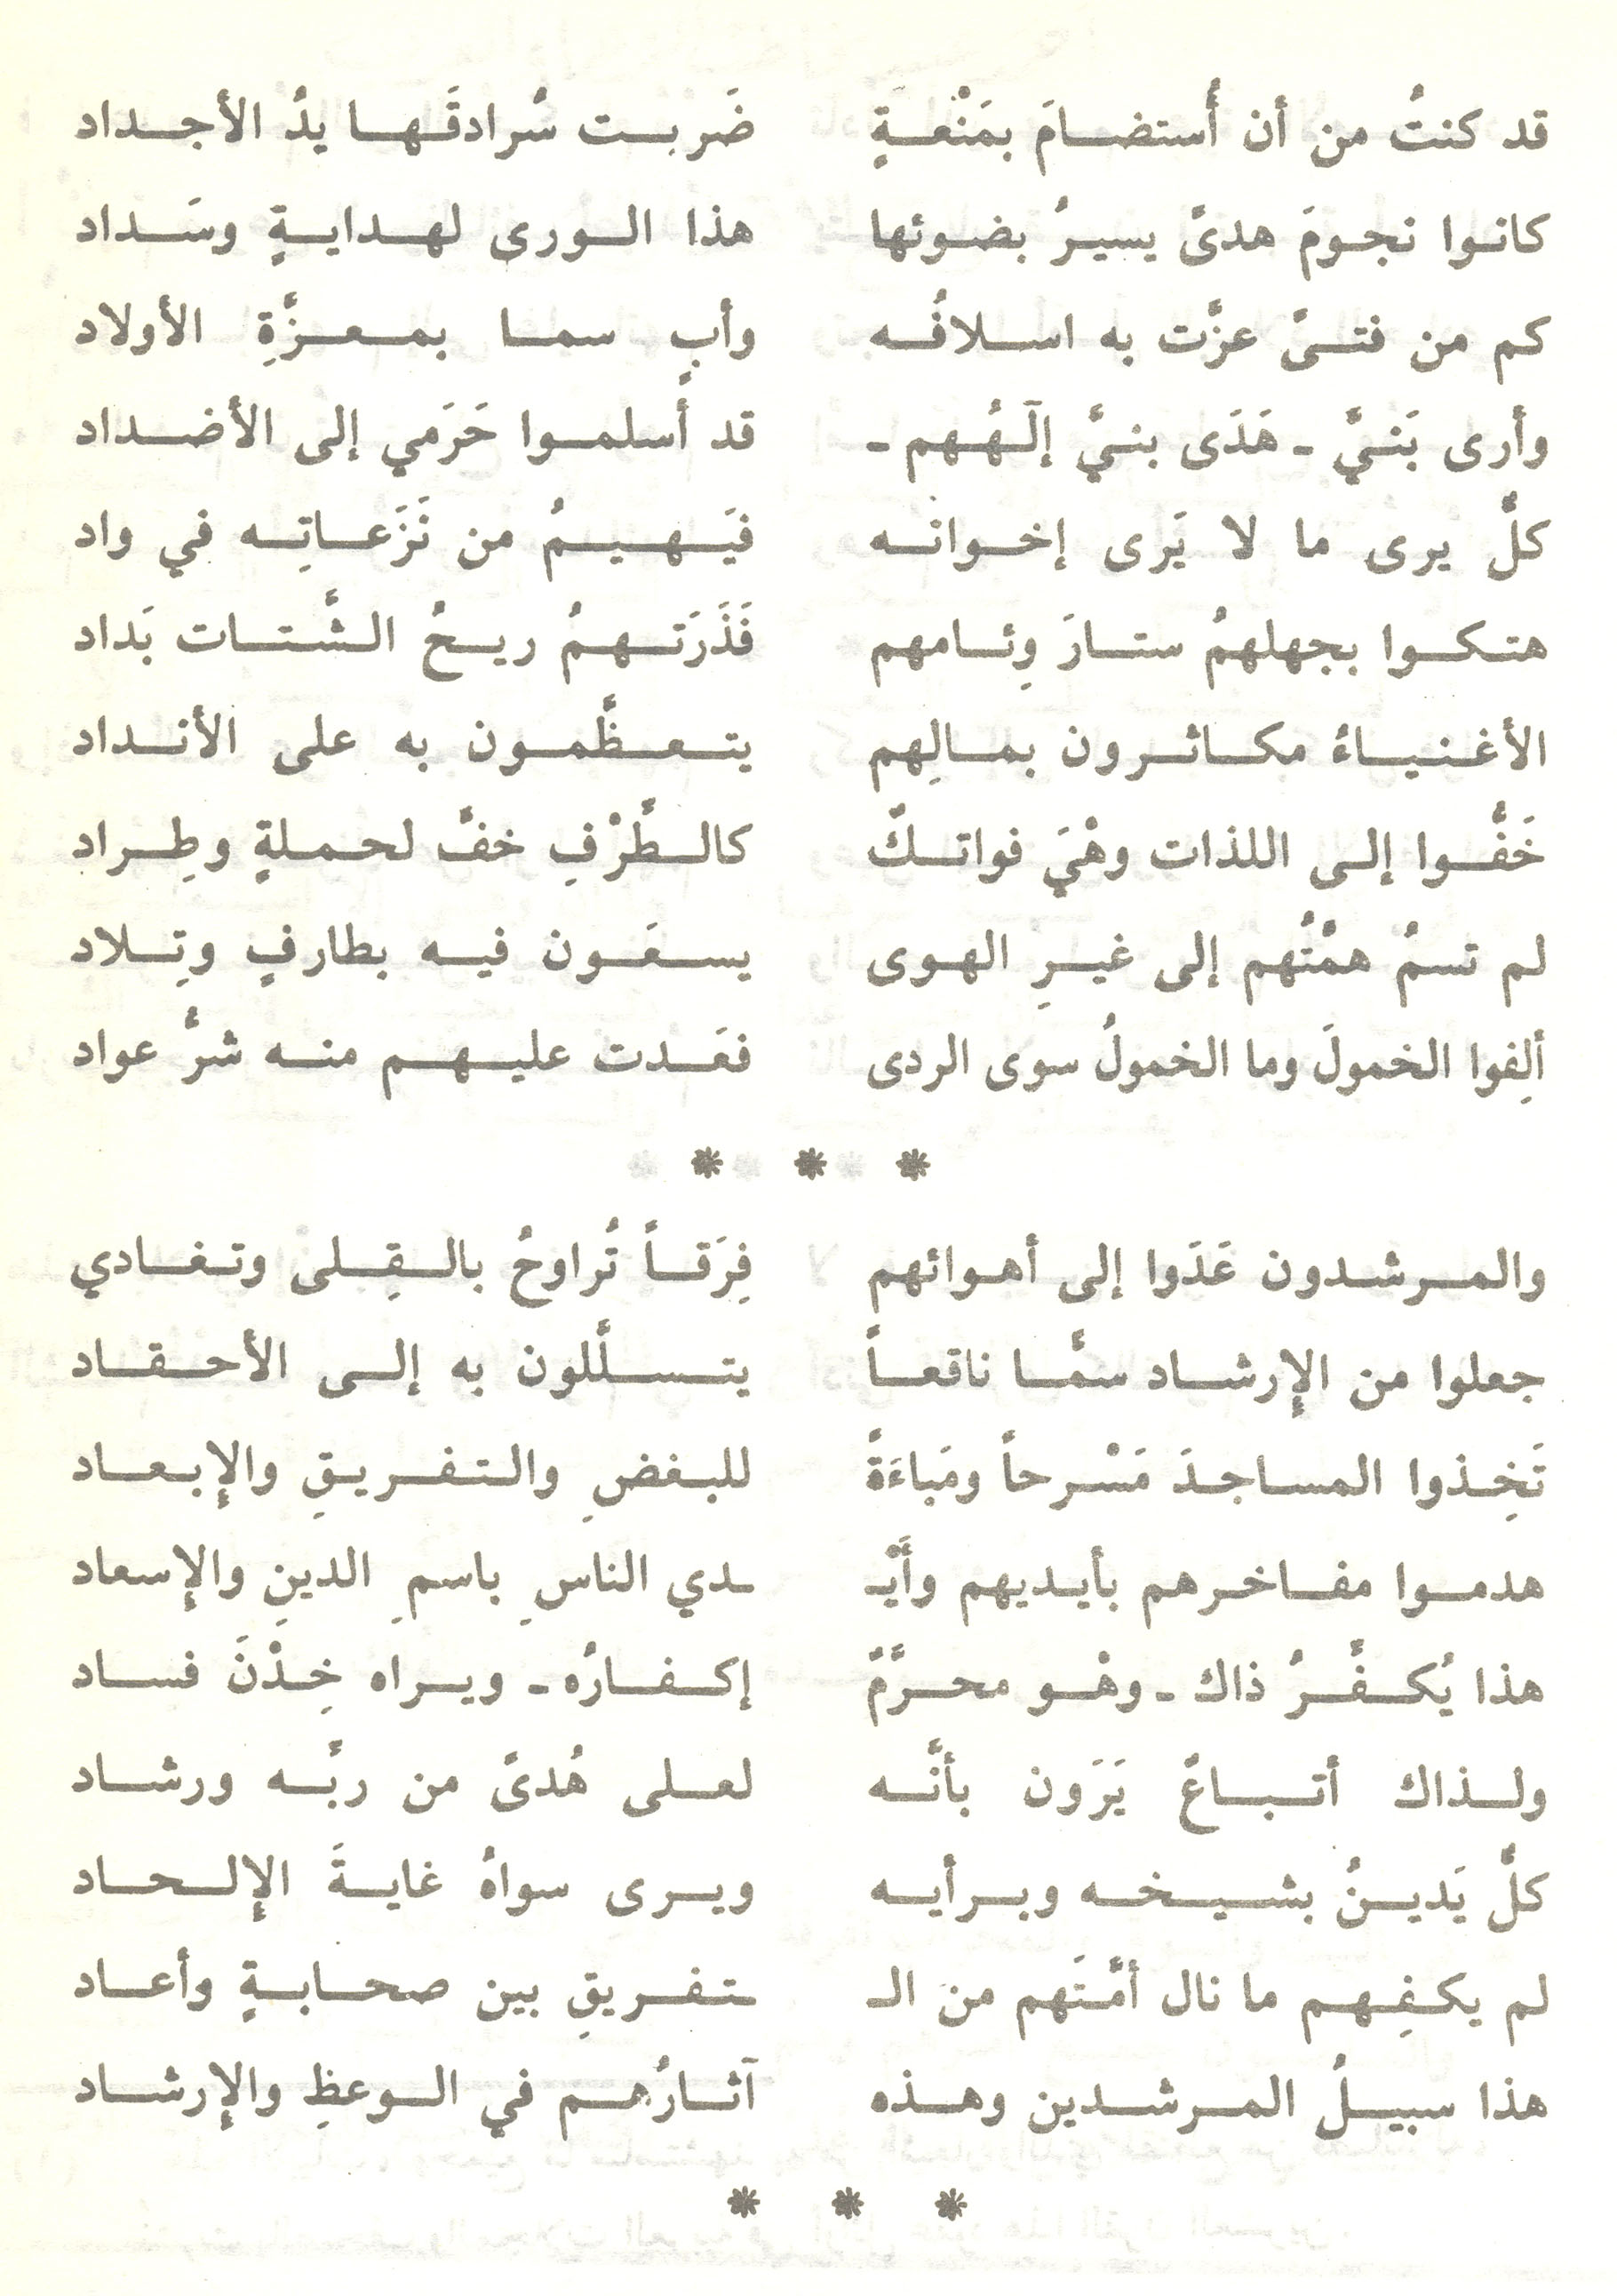 قد كنتُ من أن أُستضامَ بمَنْعةٍ ضَربت سُرادقَها يدُ الأجداد
كانوا نجومَ هدىً يسيرُ بضوئها هذا الورى لهدايةٍ وسَداد
كم من فتىً عزَّت به اسلافُه وأبٍ سما بمعزَّةِ الأولاد
وأرى بَنيَّ - هَدَى بنيَّ إلَهُهم - قد أَسلموا حَرَمي إلى الأضداد
كلٌّ يرى ما لا يَرى إخوانُه فيَهيمُ من نَزَعاتِه في واد
هتكوا بجهلهمُ ستارَ وِئامهم فَذَرَتهمُ ريحُ الشَّتات بَداد
الأغنياءُ مكاثرون بمالِهم يتعظَّمون به على الأنداد
خَفُّوا إلى اللذات وهْيَ فواتكٌ كالطَّرْفِ خفَّ لحملةٍ وطِراد
لم تسمُ همَّتُهم إلى غيرِ الهوى يسعَون فيه بطارفٍ وتِلاد
ألِفوا الخمولَ وما الخمولُ سوى الردى فعَدت عليهم منه شرُّ عواد
* * *
والمرشدون غَدَوا إلى أهوائهم فِرَقاً تُراوحُ بالقِلى وتغادي
جعلوا من الإرشاد سمَّا ناقعاً يتسلَّلون به إلى الأحقاد
تَخِذوا المساجدَ مَسْرحاً ومَباءَةً للبغضِ والتفريقِ والإبعاد
هدموا مفاخرهم بأيديهم وأَيْـ ـدي الناسِ باسمِ الدينِ والإسعاد
هذا يُكفَّرُ ذاك - وهْو محرَّمٌ إكفارُه - ويراه خِدْنَ فساد
ولذاك أتباعٌ يَرَون بأنَّه لعلى هُدىً من ربِّه ورشاد
كلٌّ يَدينُ بشيخه وبرأيه ويرى سواهُ غايةَ الإلحاد
لم يكفِهم ما نال أمَّتَهم من الـ ـتفريقِ بين صحابةٍ وأعاد
هذا سبيلُ المرشدين وهذه آثارُهم في الوعظِ والإرشاد
* * *